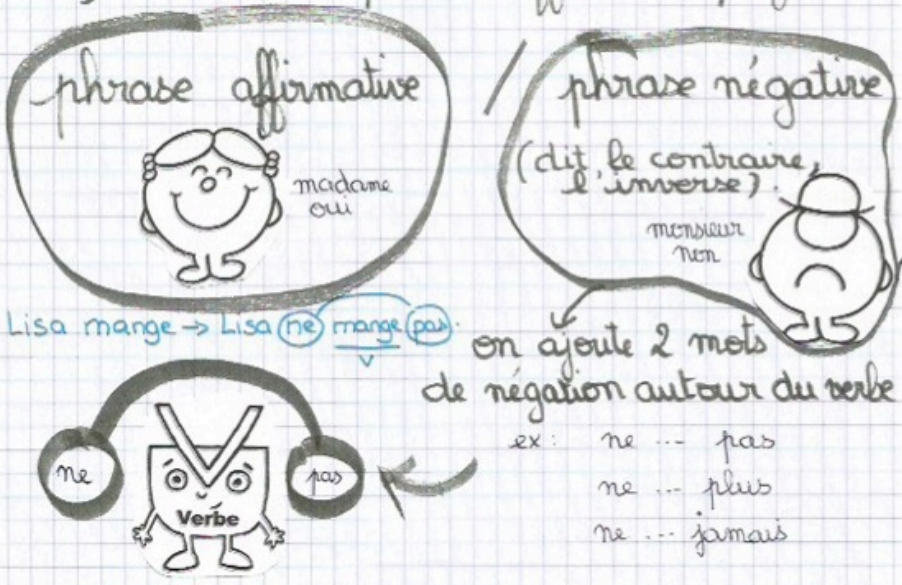 phrase affirmative
madame
oui
/
phrase négative
(dit le contraire,
l'inverse).
monsieur
non
Lisa mange → Lisa ne mange pas.
v
on ajoute 2 mots
de négation autour du verbe
ex: ne ... pas
ne ... plus
ne ... jamais
ne
Verbe
pas